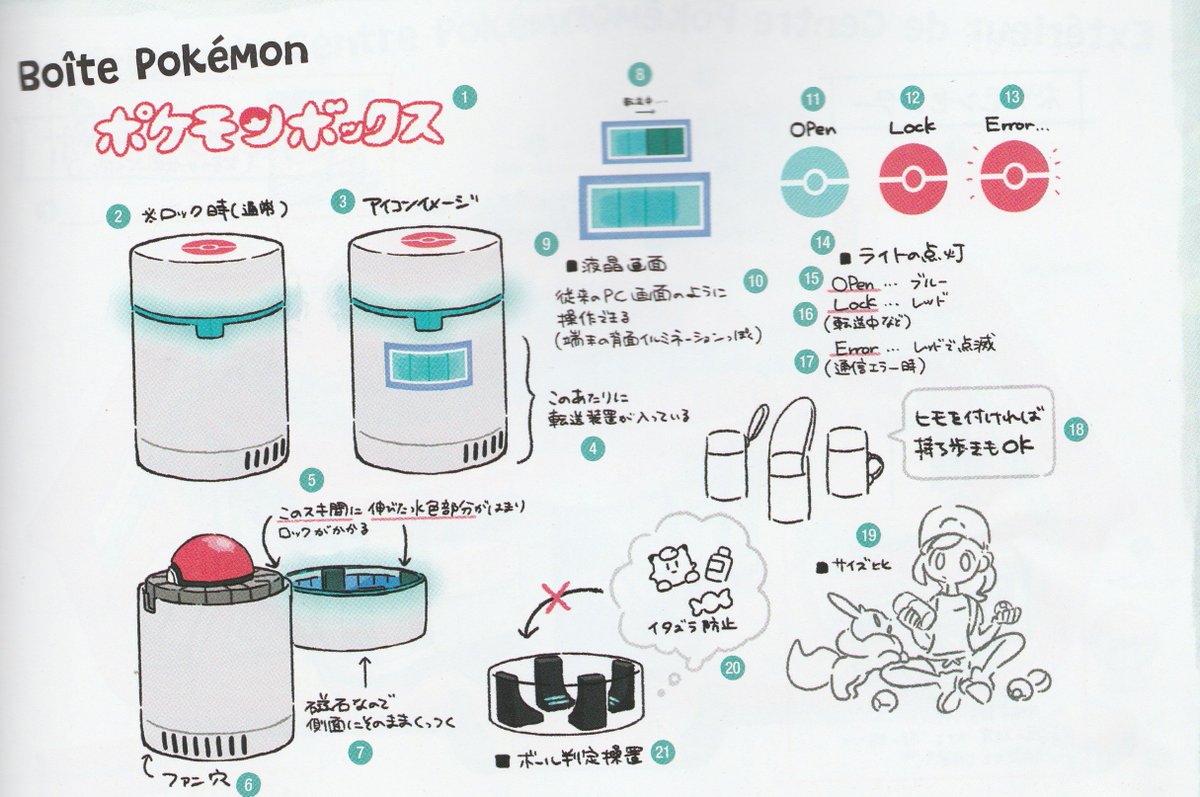 Boîte Pokémon
ポケモンボックス
1
2
※ロック時(通常)
3
アイコンイメージ
このあたりに
転送装置が入っている
4
5
このスキ間に 伸びた水色部分がはまり
ロックがかかる
磁石なので
側面にそのままくっつく
7
ファン穴
6
8
転送中…
9
■液晶画面
10
従来のPC画面のように
操作できる
(端末の背面イルミネーションっぽく)
11
OPen
12
Lock
13
Error...
14
■ライトの点灯
15
OPen … ブルー
16
Lock … レッド
(転送中など)
17
Error … レッドで点滅
(通信エラー時)
ヒモを付ければ
持ち歩きもOK
18
19
■サイズ比
イタズラ防止
20
■ボール判定装置
21